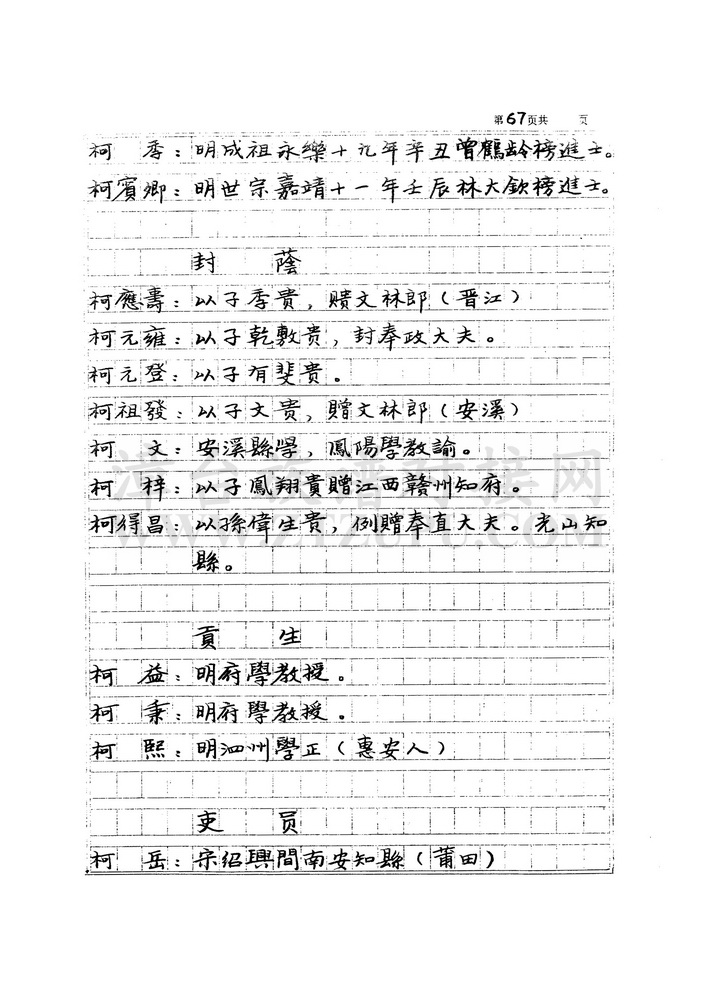 第67页共 页
柯 季：明成祖永樂十九年辛丑曾鶴龄榜進士。
柯賓卿：明世宗嘉靖十一年壬辰林大欽榜進士。
封 蔭
柯應壽：以子季貴，赠文林郎（晋江）
柯元雍：以子乾敷贵，封奉政大夫。
柯元登：以子有斐贵。
柯祖發：以子文贵，贈文林郎（安溪）
柯 文：安溪縣學，鳳陽學教諭。
柯 梓：以子鳳翔貴贈江西赣州知府。
柯得昌：以孫偉生贵，例贈奉直大夫。光山知
縣。
貢 生
柯 益：明府學教授。
柯 秉：明府學教授。
柯 熙：明泗州學正（惠安人）
吏 员
柯 岳：宋绍興間南安知縣（莆田）
WWW.ZTZUPU.COM